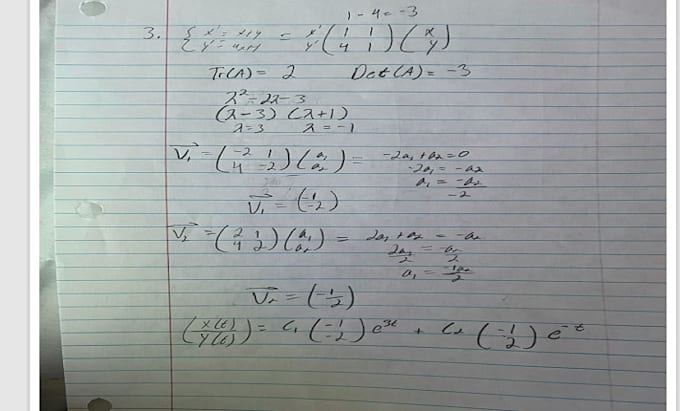 1 - 4 = -3
3. { x' = x+y y' = 4x+y = x' y' ( 1 1 4 1 ) ( x y )
Tr(A) = 2 Det(A) = -3
λ² - 2λ - 3
(λ-3) (λ+1)
λ=3 λ=-1
V₁ = ( -2 1 4 -2 ) ( a₁ a₂ ) = -2a₁ + a₂ = 0
-2a₁ = -a₂
a₁ = -a₂ / -2
V₁ = ( -1 -2 )
V₂ = ( 2 1 4 2 ) ( a₁ a₂ ) = 2a₁ + a₂ = -a₂
2a₁ / 2 = -a₂ / 2
a₁ = -1a₂ / 2
V₂ = ( -1 2 )
( x(t) y(t) ) = C₁ ( -1 -2 ) e^3t + C₂ ( -1 2 ) e^-t